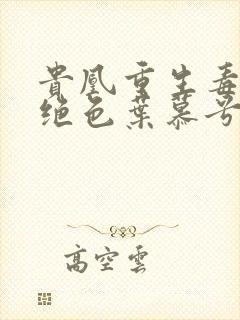 貴凰重生毒
绝色葉慕兮
高空雲